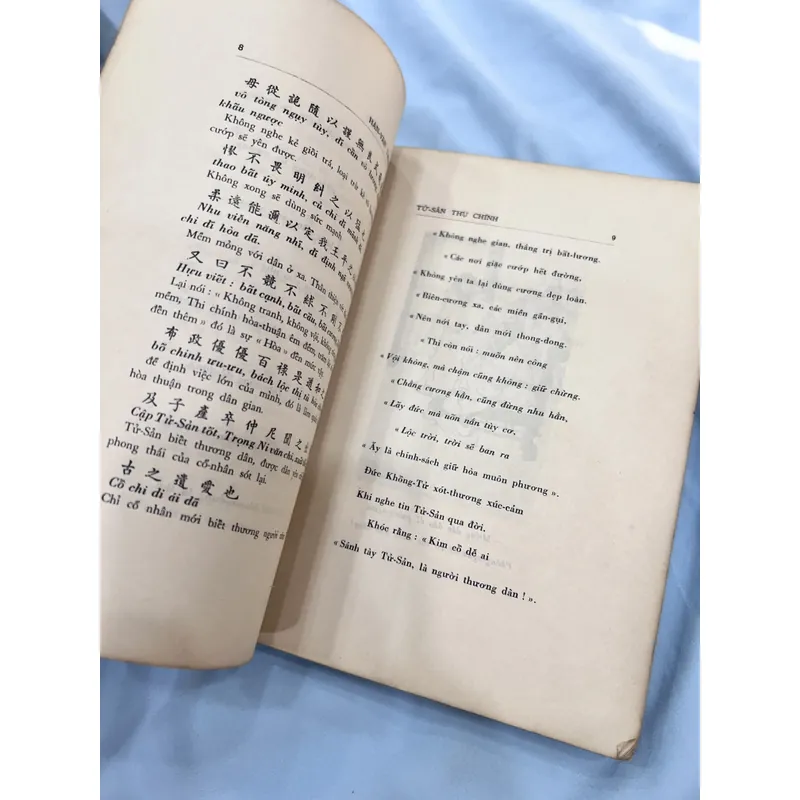 8
毋從詭隨以謹無良
vô tòng ngụy tùy, dĩ cẩn vô lương
khấu ngược
Không nghe kẻ giỏi trá, loại trừ kẻ
cướp sẽ yên được.
慘不畏明糾之以猛
thao bất úy minh, củ chi dĩ mãnh
Không xong sẽ dùng sức mạnh
柔遠能邇以定我王平之
Nhu viễn năng nhĩ, dĩ định ngã
chi dĩ hòa dã.
Mềm mỏng với dân ở xa. Thân thiện
又曰不競不絿不剛不
Hựu viết : bất cạnh, bất cầu, bất cương
Lại nói : « Không tranh, không vội, không
mềm, Thi chính hòa-thuận êm đềm, trăm
đến thêm » đó là sự « Hòa » đến mức
布政優優百祿是遒和之
bố chính ưu-ưu, bách lộc thị tù hòa
để định việc lớn của mình, đó là làm
hòa thuận trong dân gian.
及子產卒仲尼聞之
Cập Tử-Sản tốt, Trọng Ni văn chi, xuất
Tử-Sản biết thương dân, được dân
phong thái của cổ-nhân sót lại.
古之遺愛也
Cổ chi di ái dã
Chỉ cổ nhân mới biết thương người
TỬ-SẢN THỦ CHÍNH
9
« Không nghe gian, thẳng trị bất-lương.
« Các nơi giặc cướp hết đường,
« Không yên ta lại dùng cương dẹp loàn.
« Biên-cương xa, các miền gần-gụi,
« Nên nới tay, dân mới thong-dong.
« Thi còn nói : muốn nên công
« Vội không, mà chậm cũng không : giữ chừng.
« Chẳng cương hẳn, cũng đừng nhu hẳn,
« Lấy đức mà uốn nắn tùy cơ.
« Lộc trời, trời sẽ ban ra
« Ấy là chính-sách giữ hòa muôn phương ».
Đức Khổng-Tử xót-thương xúc-cảm
Khi nghe tin Tử-Sản qua đời.
Khóc rằng : « Kim cổ dễ ai
« Sánh tày Tử-Sản, là người thương dân ! ».